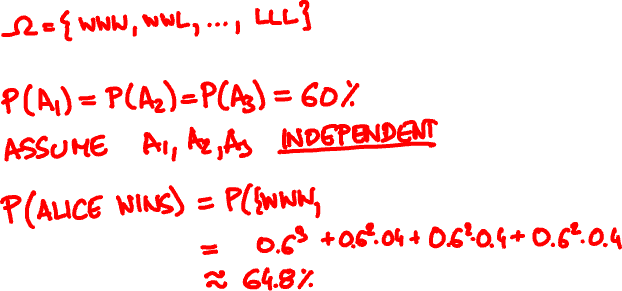 Ω = { WWW, WWL, ..., LLL }
P(A₁) = P(A₂) = P(A₃) = 60%
ASSUME A₁, A₂, A₃ INDEPENDENT
P(ALICE WINS) = P({WWW,
= 0.6³ + 0.6²·04 + 0.6²·0.4 + 0.6²·0.4
≈ 64.8%